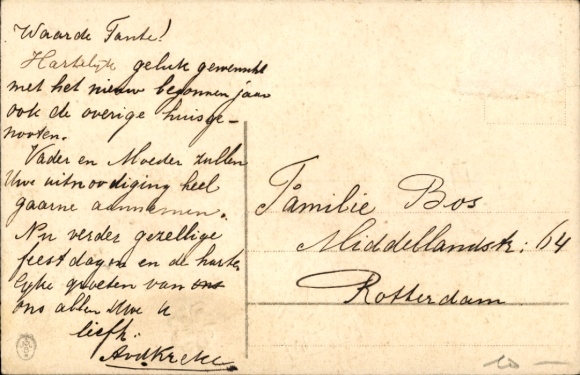 Waarde Tante!
Hartelijk geluk gewenscht
met het nieuw begonnen jaar
ook de overige huisge-
nooten.
Vader en Moeder zullen
Uwe uitnoodiging heel
gaarne aannemen.
Nu verder gezellige
feestdagen en de harte
lijke groeten van ons
ons allen Uwe
liefh:
Familie Bos
Middellandstr: 64
Rotterdam
10 —